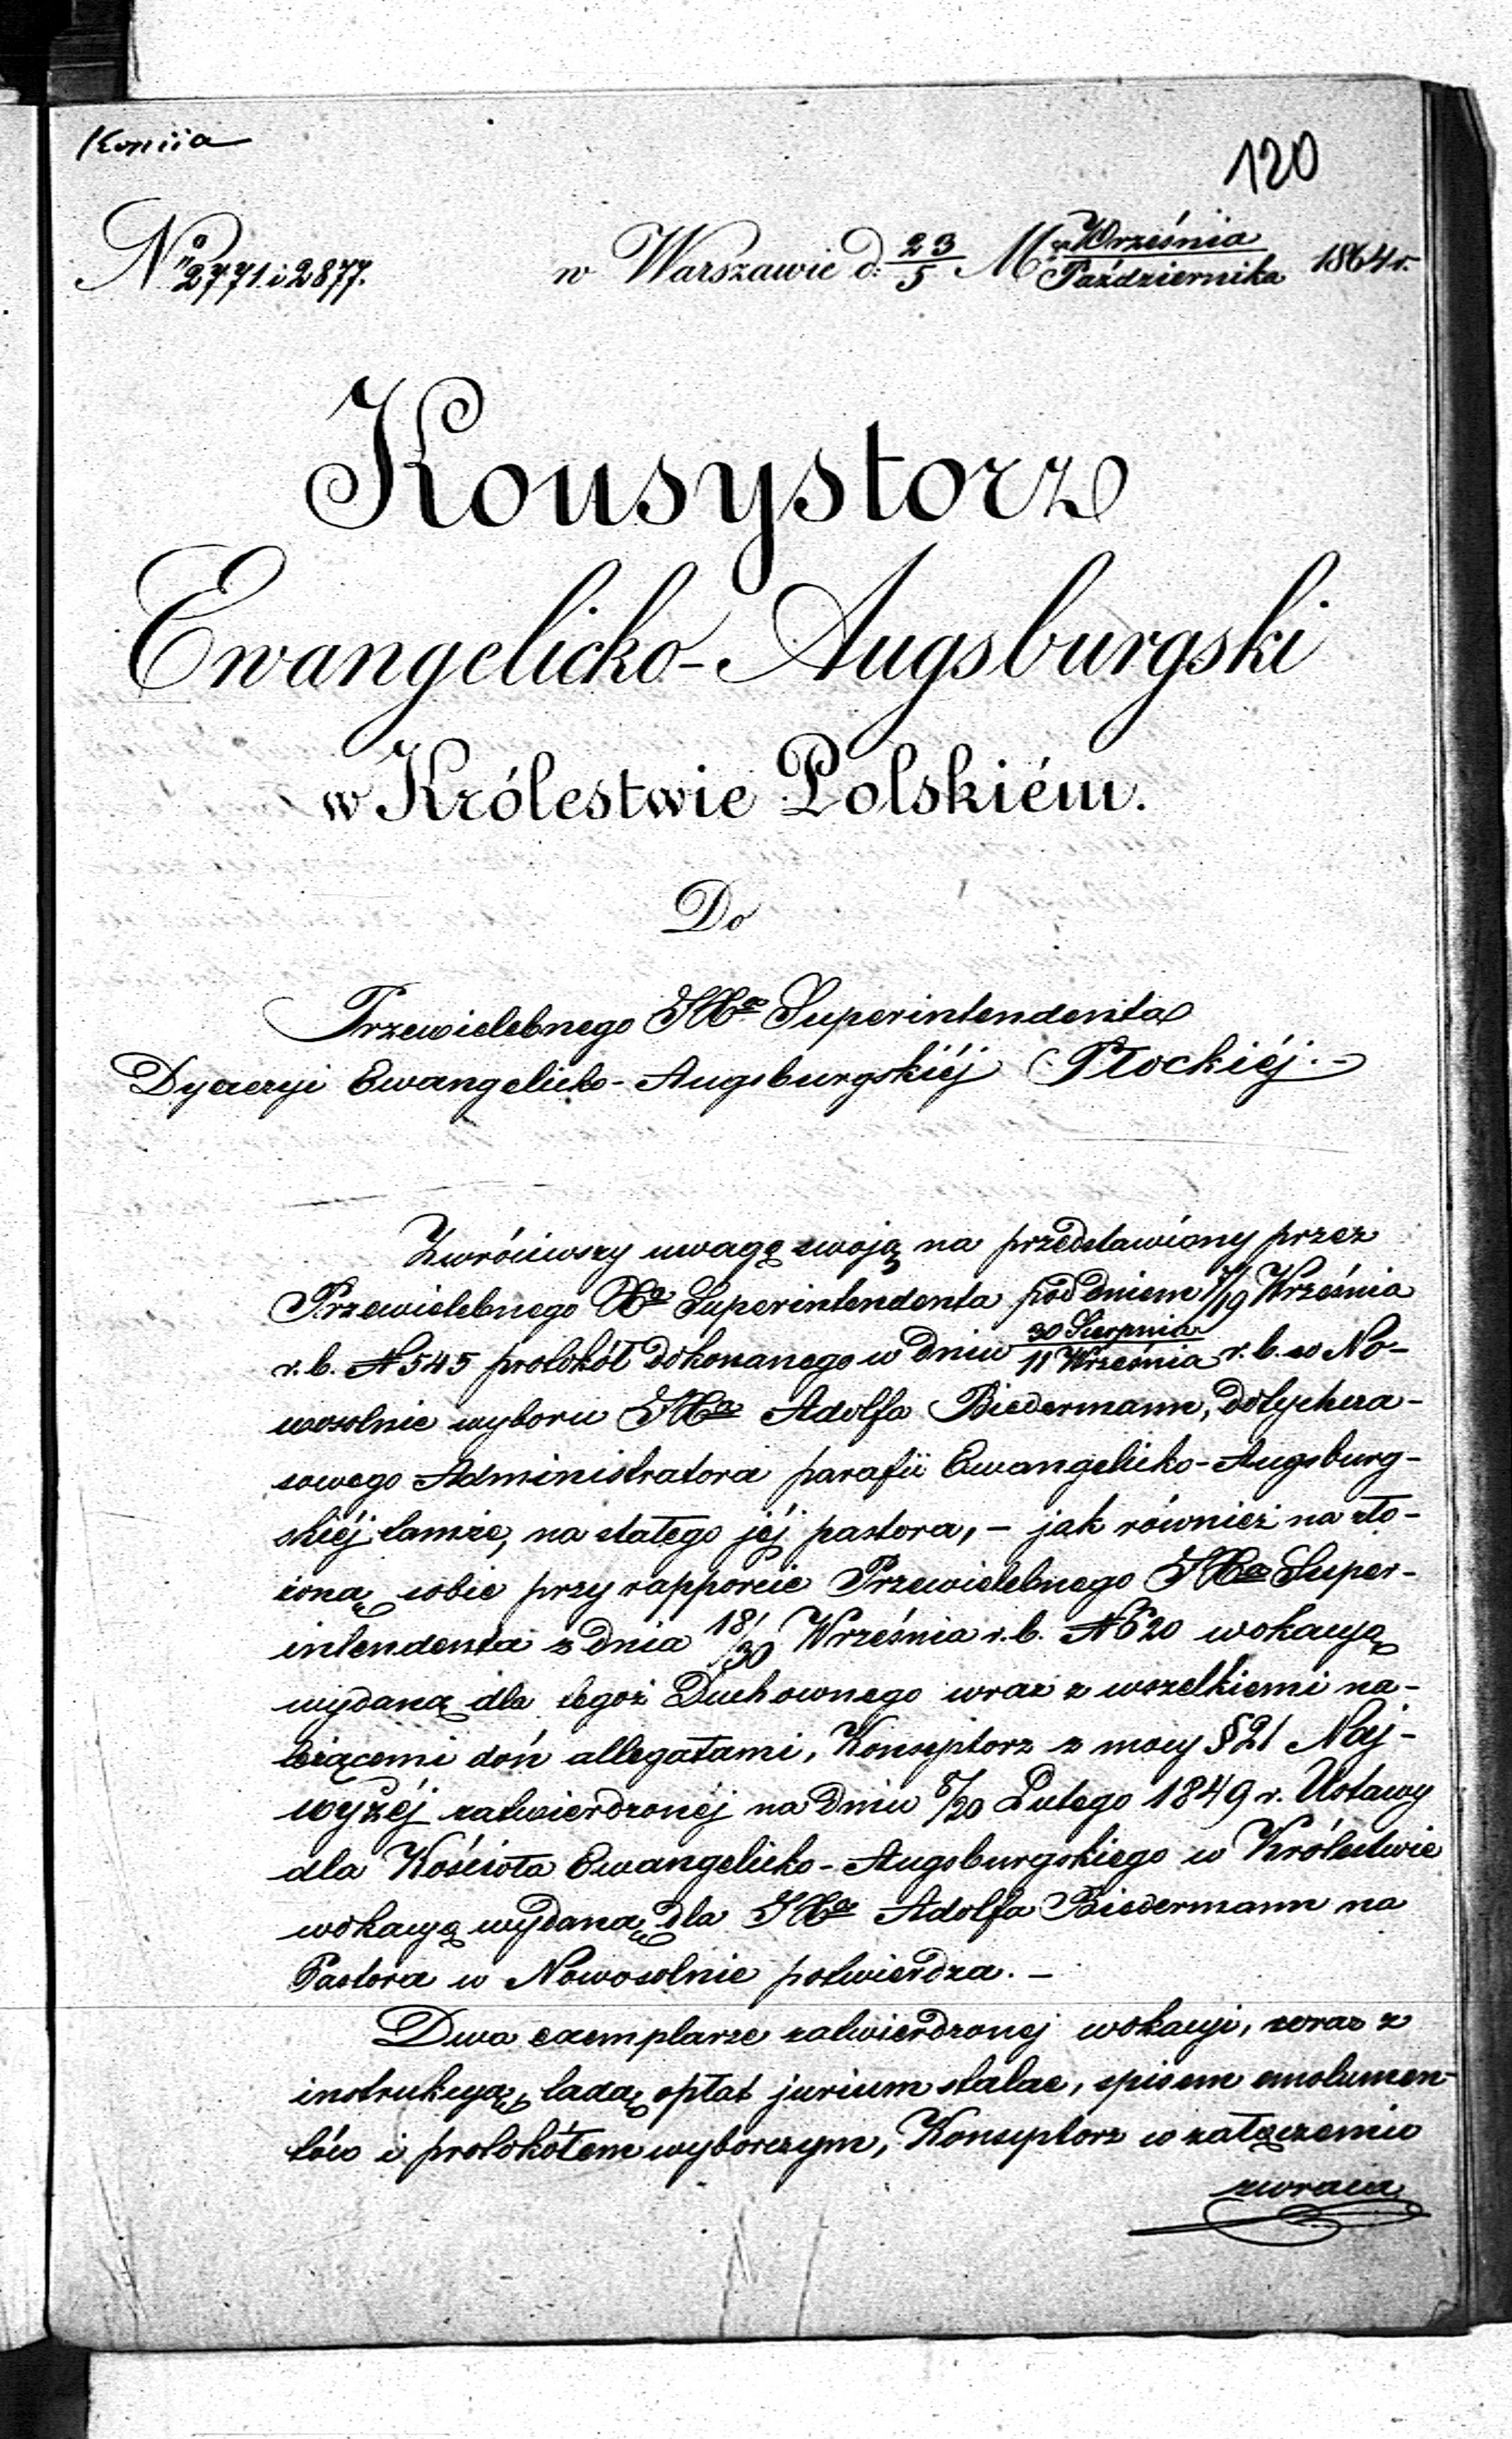 Kopiia
120
No 2771 i 2877.
w Warszawie d: 23/5 Mca Września/Października 1864 r.
Konsystorz
Ewangelicko-Augsburgski
w Królestwie Polskiém.
Do
Przewielebnego JXa Superintendenta
Dyecezyi Ewangelicko-Augsburgskiéj Płockiéj.
Zwróciwszy uwagę swoją na przedstawiony przez
Przewielebnego Xa Superintendenta pod dniem 7/19 Września
r. b. N 545 protokół dokonanego w dniu 30 Sierpnia/11 Września r. b. w No-
wosolnie wyboru JXa Adolfa Biedermann, dotychcza-
sowego Administratora parafii Ewangelicko-Augsburg-
skiéj tamże, na stałego jéj pastora, – jak również na zło-
żoną sobie przy rapporcie Przewielebnego JXa Super-
intendenta z dnia 18/30 Września r. b. N 620 wokacyą
wydaną dla tegoż Duchownego wraz z wszelkiemi na-
leżącemi doń allegatami, Konsystorz z mocy § 21 Naj-
wyżéj zatwierdzonéj na dniu 8/20 Lutego 1849 r. Ustawy
dla Kościoła Ewangelicko-Augsburgskiego w Królestwie
wokacyę wydaną dla JXa Adolfa Biedermann na
Pastora w Nowosolnie potwierdza. –
Dwa exemplarze zatwierdzonej wokacyi, wraz z
instrukcyą, ladą opłat jurium stalae, spisem emolumen-
tów i protokółem wyborczym, Konsystorz w załączeniu
zwraca